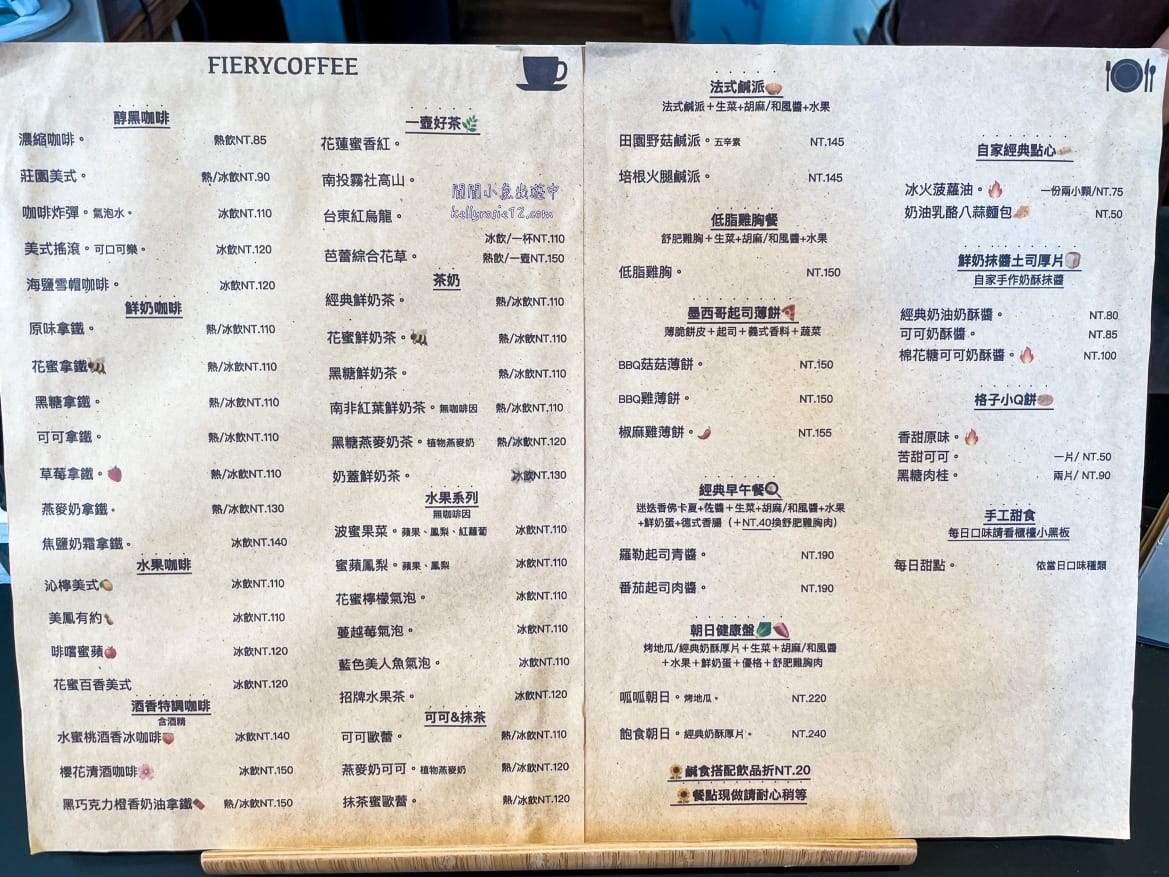 FIERYCOFFEE
醇黑咖啡
濃縮咖啡。 熱飲NT.85
莊園美式。 熱/冰飲NT.90
咖啡炸彈。氣泡水。 冰飲NT.110
美式搖滾。可口可樂。 冰飲NT.120
海鹽雪帽咖啡。 冰飲NT.120
鮮奶咖啡
原味拿鐵。 熱/冰飲NT.110
花蜜拿鐵 熱/冰飲NT.110
黑糖拿鐵。 熱/冰飲NT.110
可可拿鐵。 熱/冰飲NT.110
草莓拿鐵。 熱/冰飲NT.110
燕麥奶拿鐵。 熱/冰飲NT.130
焦鹽奶霜拿鐵。 冰飲NT.140
水果咖啡
沁檸美式 冰飲NT.110
美鳳有約 冰飲NT.110
啡嚐蜜蘋 冰飲NT.120
花蜜百香美式 冰飲NT.120
酒香特調咖啡
含酒精
水蜜桃酒香冰咖啡 冰飲NT.140
櫻花清酒咖啡 冰飲NT.150
黑巧克力橙香奶油拿鐵 熱/冰飲NT.150
一壺好茶
花蓮蜜香紅。
南投霧社高山。
台東紅烏龍。
芭蕾綜合花草。
冰飲/一杯NT.110
熱飲/一壺NT.150
閒閒小魚出遊中
kellyrosie12.com
茶奶
經典鮮奶茶。 熱/冰飲NT.110
花蜜鮮奶茶。 熱/冰飲NT.110
黑糖鮮奶茶。 熱/冰飲NT.110
南非紅葉鮮奶茶。無咖啡因 熱/冰飲NT.110
黑糖燕麥奶茶。植物燕麥奶 熱/冰飲NT.120
奶蓋鮮奶茶。 冰飲NT.130
水果系列
無咖啡因
波蜜果菜。蘋果、鳳梨、紅蘿蔔 冰飲NT.110
蜜蘋鳳梨。蘋果、鳳梨 冰飲NT.110
花蜜檸檬氣泡。 冰飲NT.110
蔓越莓氣泡。 冰飲NT.110
藍色美人魚氣泡。 冰飲NT.110
招牌水果茶。 冰飲NT.120
可可&抹茶
可可歐蕾。 熱/冰飲NT.110
燕麥奶可可。植物燕麥奶 熱/冰飲NT.120
抹茶蜜歐蕾。 熱/冰飲NT.120
法式鹹派
法式鹹派＋生菜+胡麻/和風醬+水果
田園野菇鹹派。五辛素 NT.145
培根火腿鹹派。 NT.145
低脂雞胸餐
舒肥雞胸＋生菜+胡麻/和風醬+水果
低脂雞胸。 NT.150
墨西哥起司薄餅
薄脆餅皮＋起司＋義式香料＋蔬菜
BBQ菇菇薄餅。 NT.150
BBQ雞薄餅。 NT.150
椒麻雞薄餅。 NT.155
經典早午餐
迷迭香佛卡夏+佐醬＋生菜+胡麻/和風醬+水果
+鮮奶蛋+德式香腸（＋NT.40換舒肥雞胸肉）
羅勒起司青醬。 NT.190
番茄起司肉醬。 NT.190
朝日健康盤
烤地瓜/經典奶酥厚片＋生菜＋胡麻/和風醬
＋水果＋鮮奶蛋＋優格＋舒肥雞胸肉
呱呱朝日。烤地瓜。 NT.220
飽食朝日。經典奶酥厚片。 NT.240
鹹食搭配飲品折NT.20
餐點現做請耐心稍等
自家經典點心
冰火菠蘿油。 一份兩小顆/NT.75
奶油乳酪八蒜麵包 NT.50
鮮奶抹醬土司厚片
自家手作奶酥抹醬
經典奶油奶酥醬。 NT.80
可可奶酥醬。 NT.85
棉花糖可可奶酥醬。 NT.100
格子小Q餅
香甜原味。
苦甜可可。 一片/ NT.50
黑糖肉桂。 兩片/ NT.90
手工甜食
每日口味請看櫃檯小黑板
每日甜點。 依當日口味種類